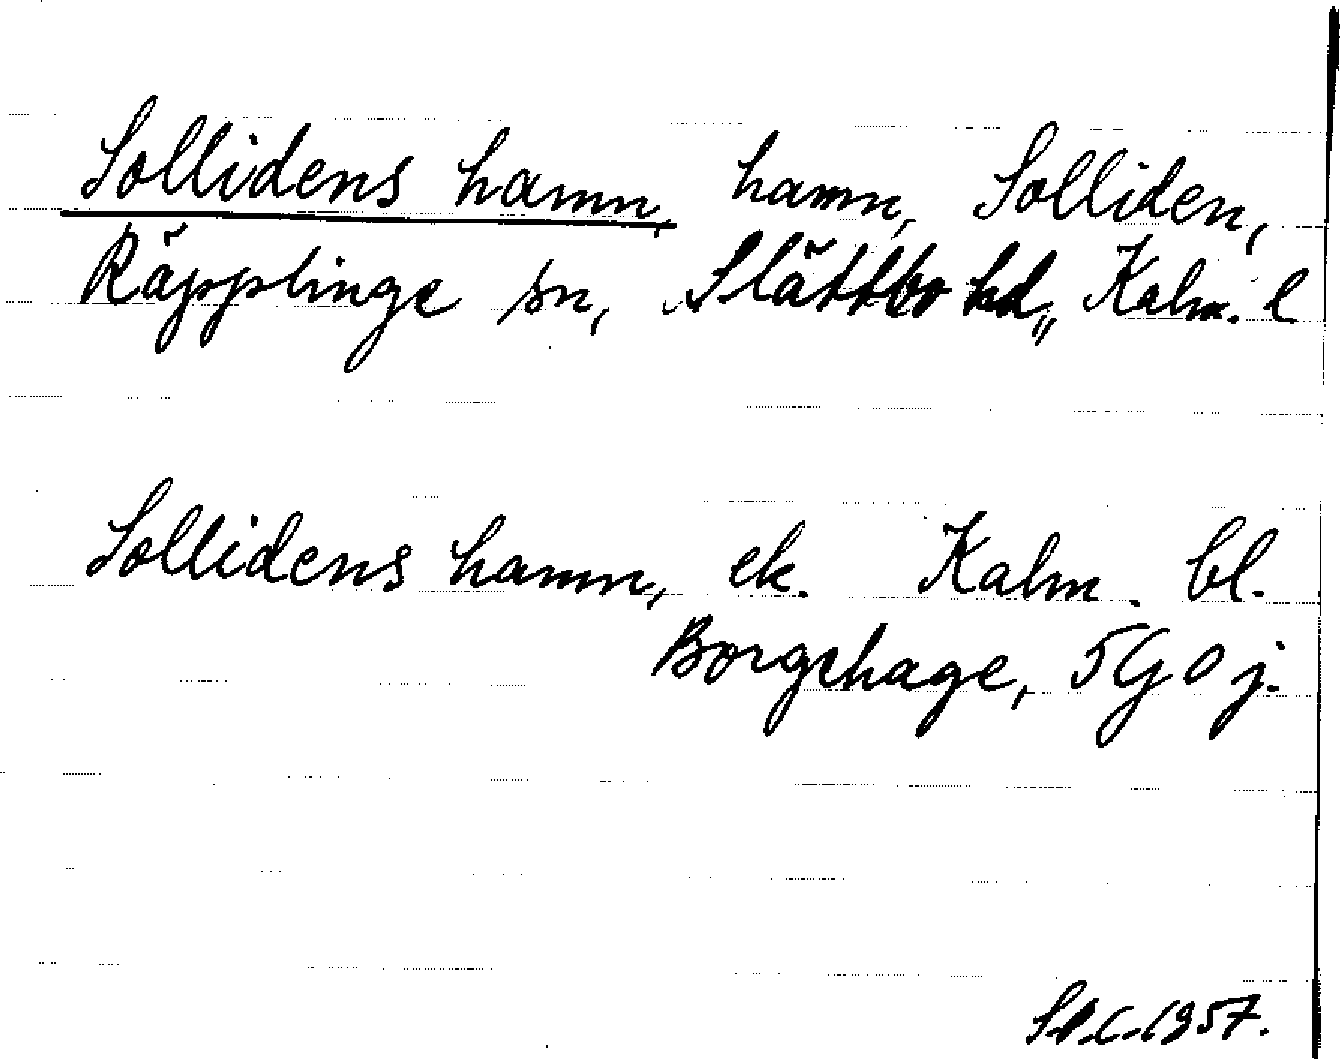 Sollidens hamn, hamn, Solliden,
Räpplinge sn, Slättbo hd, Kalm. l
Sollidens hamn, ek. Kalm. bl.
Borgehage, 5G0j.
1957.